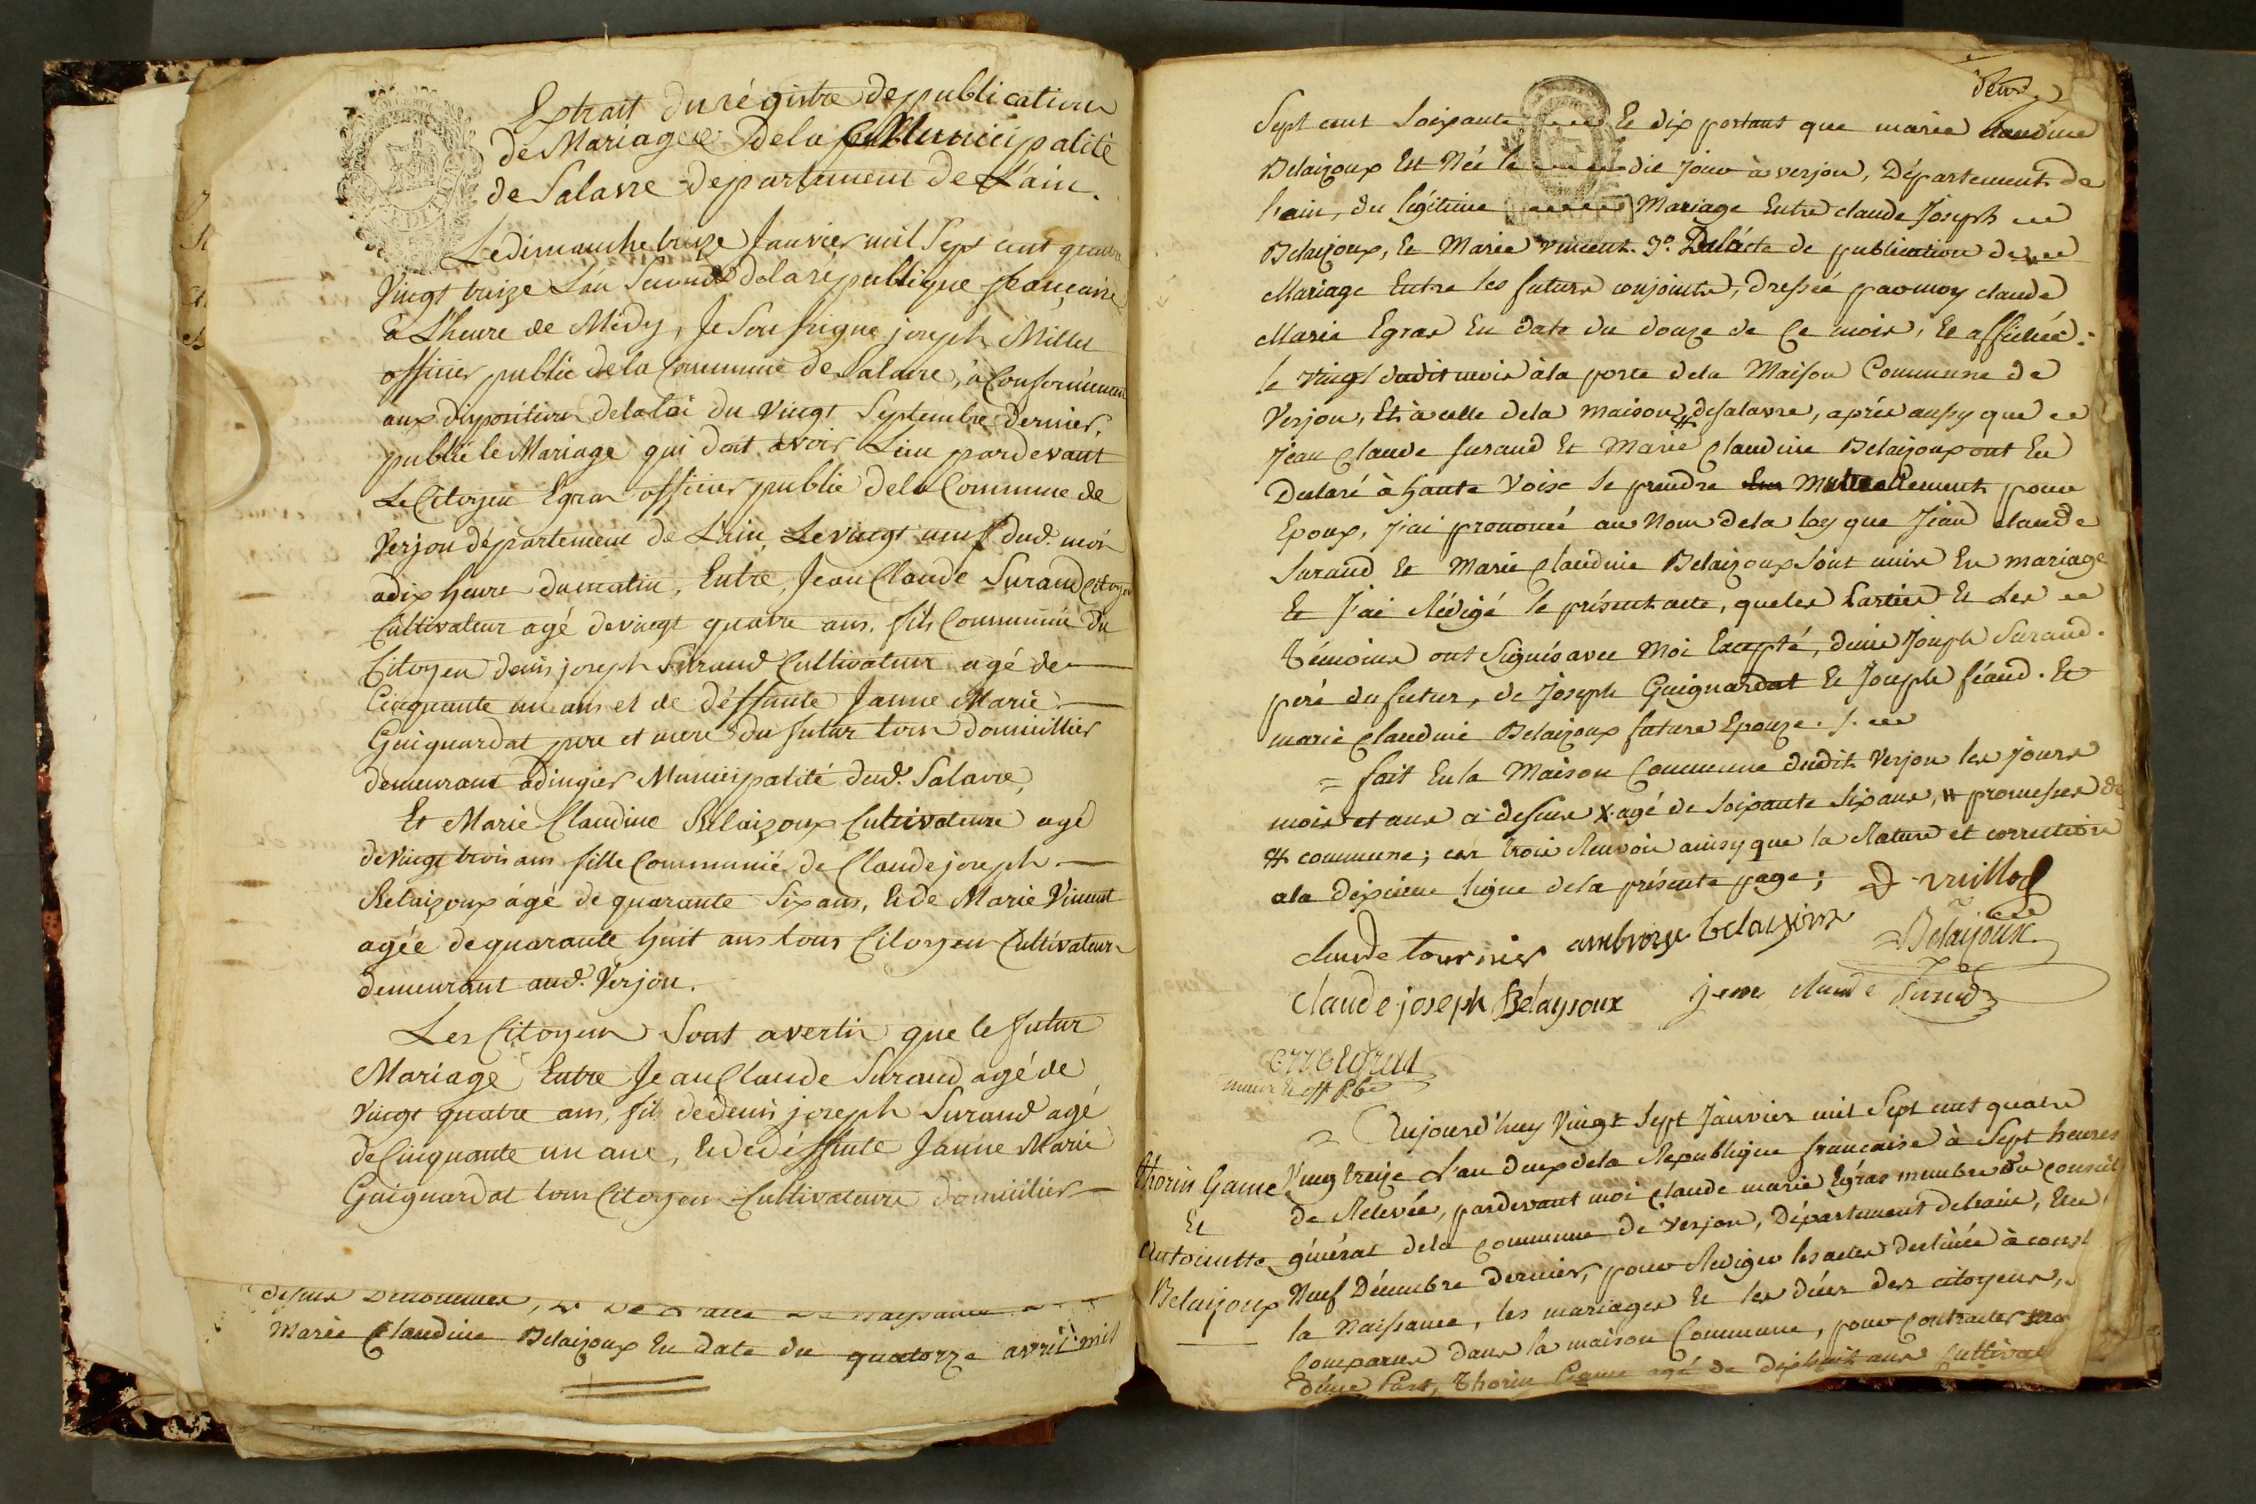 Extrait du régistre de publication
de Mariage de la Municipalité
de Salavre département de L'ain.
Le dimanche treize Janvier mil Sept cent quatre
Vingt treize L'an Second de la république française
à L'heure de Midy, Je Soussigné joseph Millet
officier public de la Commune de Salavre, a Conformément
aux dispositions de la loi du Vingt Septembre dernier,
publié le Mariage qui doit avoir Lieu pardevant
Le Citoyen Egras officier public de la Commune de
Verjon département de L'ain, Le vingt neuf dud. mois
a dix heure du matin, Entre Jean Claude Suraud Citoyen
Cultivateur agé de vingt quatre ans, fils Communné du
Citoyen denis joseph Suraud Cultivateur agé de
Cinquante un ans et de déffunte Janne Marie
Guiguardat pere et mere du futur tous domicillier
demeurant a dingier Municipalité dud. Salavre,
Et Marie Claudine Belaizoux Cultivateure agé
de Vingt trois ans fille Communné de Claude joseph
Belaizoux âgé de quarante Six ans, Et de Marie Vincent
agée de quarante huit ans tous Citoyen Cultivateurs
demeurant aud. Verjon.
Les Citoyens Sont avertis que le futur
Mariage Entre Jean Claude Suraud agé de
Vingt quatre ans, fils de denis joseph Suraud agé
de Cinquante un ans, Et de déffunte Janne Marie
Guiguardat tous Citoyens Cultivateurs domicilier
Marie Claudine Belaizoux En date du quatorze avril mil
deux
Sept cent Soixante Et dix portant que marie Claudine
Belaizoux Est Née le dit Jour à verjon, Département de
l'ain, du légitime Mariage Entre claude Joseph
Belaizoux, Et Marie vincent. 3º. De l'acte de publication de
Mariage Entre les futurs conjoints, dressée par moy claude
Marie Egras En date du douze de Ce mois, Et affichée
le Vingt dudit mois à la porte de la Maison Commune de
Verjon, Et à celle de la maison # de salavre, après aussy que
Jean Claude Suraud Et Marie Claudine Belaizoux ont Eu
Declaré à haute Voix se prendre Mutuellement pour
Epoux, J'ai prononcé au Nom de la loy que Jean claude
Suraud Et Marie Claudine Belaizoux Sont unis En mariage
Et J'ai Rédigé le présent acte, que les Parties Et Les
témoins ont Signés avec Moi Excepté, denis Joseph Suraud.
peré du futur, de Joseph Guiguardat Et Joseph féaud. Et
marie Claudine Belaizoux future Epouze.
= fait En la Maison Commune dudit Verjon les jours
mois et ans ci dessus X agé de Soixante Six ans, # promesses de
# commune; ces trois Renvois ainsy que la Rature et correction
a la dixième ligne de la présente page; D. vuillod
claude tournier ambroise belaizoux Belaijoux
Claude joseph Belaysoux jean claude Suraud
cm Egras
maire Et off. Pbc
Aujourd'huy Vingt Sept Janvier mil Sept cent quatre
Thorin Game Ving treize L'an deux de la Republique francaise à Sept heures
Et de Relevée, pardevant moi Claude marie Egras membre du conseil
Antoinette général de la commune de Verjon, Département de l'ain, Elu
Belaizoux Neuf Décembre dernier, pour Rediger les actes destinés à const
la Naissance, les mariages Et les décés des citoyens,
Comparus dans la maison Commune, pour Contracter ma
d'une Part, Thorin Game agé de dixhuit ans Cultiva